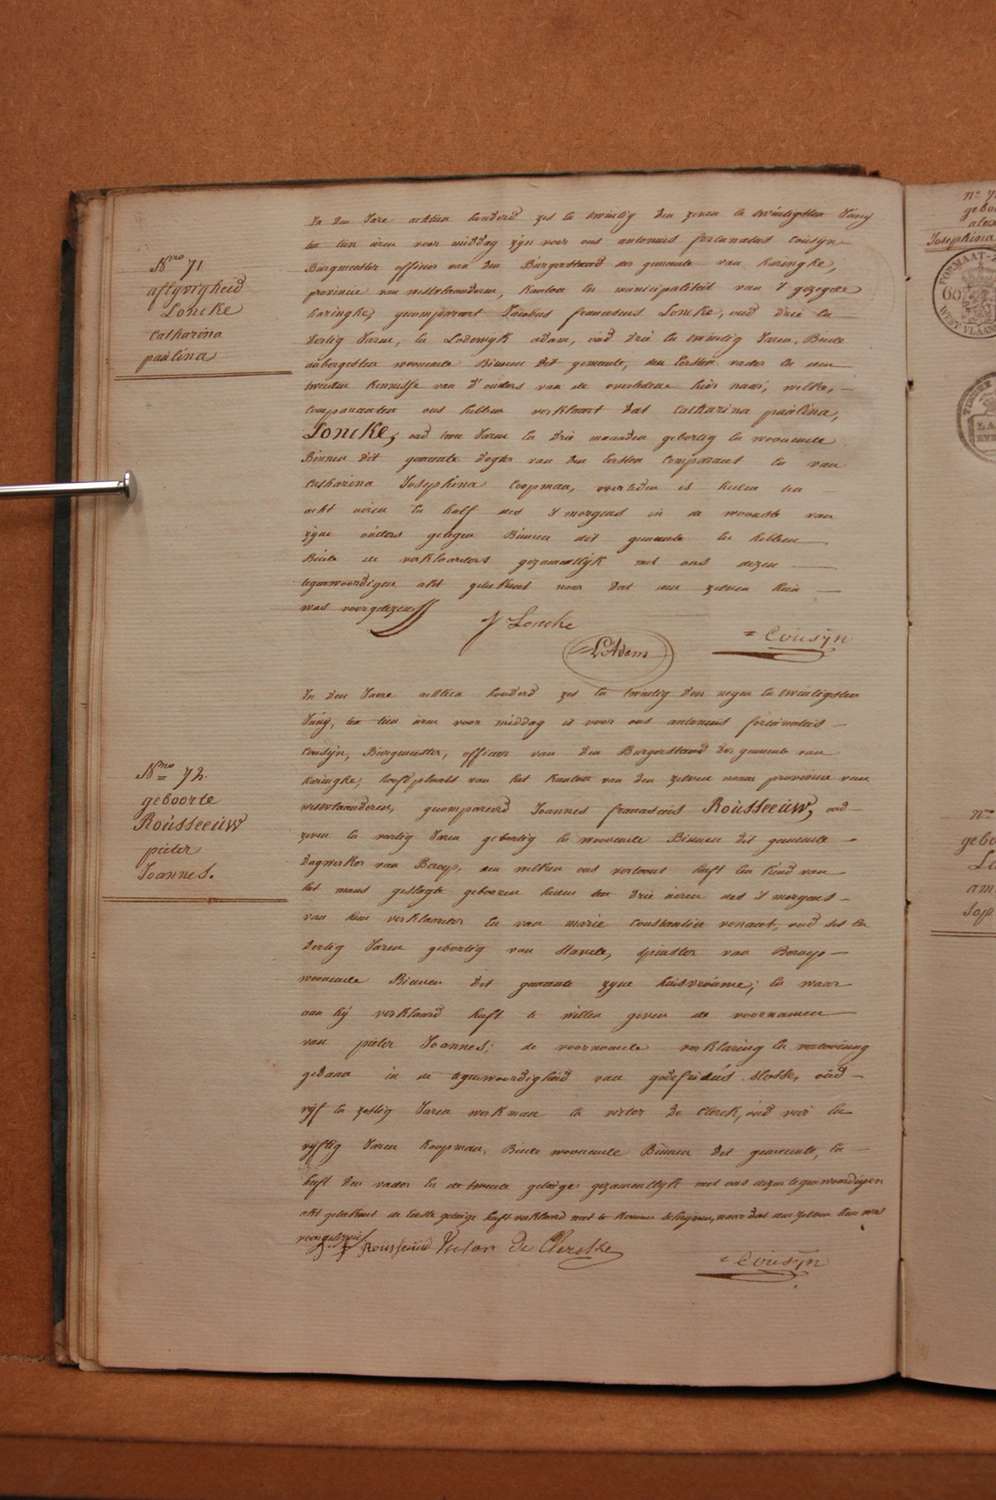 N.ro 71
aflijvigheid
Loncke
catharina
paülina
In den Jare achtien honderd zes en twintig den zeven en twintigsten Junij
ten tien üren voor middag zijn voor ons antonius fortunatus Cousijn
Bürgmeester officier van den Bürgerstand der gemeente van haringhe,
provincie van westvlaanderen, kanton en municipaliteit van 't gezegde
haringhe; gecompareert Jacobus franciscus Loncke, oud drie en
dertig Jaren, en Lodewijk adam, oud drie en twintig Jaren, Beide
aübergisten woonende Binnen dit gemeente, den eersten vader en den
tweeden kennisse van d'ouders van de overledene hier naar, welke
Comparanten ons hebben verklaart dat Catharina paülina,
Loncke, oud twee Jaren en drie maanden geboortig en woonende
Binnen dit gemeente dogter van den eersten Comparant en van
Catharina Josephina Coopman, overleden is heden ten
acht üeren en half des 's morgens in de woonste van
zijne oüders gelegen Binnen dit gemeente en hebben
Beide de verklaarders gezamentlijk met ons dezen
tegenwoordigen akt geteekent naer dat den zelven hun
was voorgelezen
J Loncke
L Adam
Cousijn
N.ro 72.
geboorte
Roüsseeuw
pieter
Joannes.
In den Jaere achtien honderd zes en twintig den negen en twintigsten
Junij, ten tien üren voor middag is voor ons antonius fortunatus
Cousijn, Bürgmeester, officier van den Burgerstand der gemeente van
haringhe; hooftplaats van het kanton van den zelven name provincie van
westvlaanderen, gecompareerd Joannes franciscus Roüsseeuw, oud
zeven en veertig Jaren geboortig en woonende Binnen dit gemeente
Dagwerker van Beroep, den welken ons vertoont heeft een kind van
het mans geslagte geboren heden ten drie üeren des 's morgens
van hem verklaarder en van marie Constantia oud zes en
dertig Jaren geboortig van Stavele, spinster van Beroep
woonende Binnen dit gemeente zijne huisvrouwe; en waar
aan hij verklaard heeft te willen geven de voornamen
van pieter Joannes; de voornoemde verklaring en vertooning
gedaan in de tegenwoordigheid van godefridus oud
vijf en zestig Jaren werkman en victor De Clerck, oud vier en
vijftig Jaren koopman, Beide woonende Binnen dit gemeente, en
heeft den vader en de tweede getüige gezamentlijk met ons dezen tegenwoordigen
akt geteekent de eerste getüige heeft verklaard niet te konnen schrijven, naer dat den zelven hun was
voorgelezen
Rousseeuw Victor De Clercke
Cousijn
N.o 7
gebo
alex
Josephina
FORMAAT-Z
60
WEST VLAAN
N.ro
gebo
Lo
am
Sop